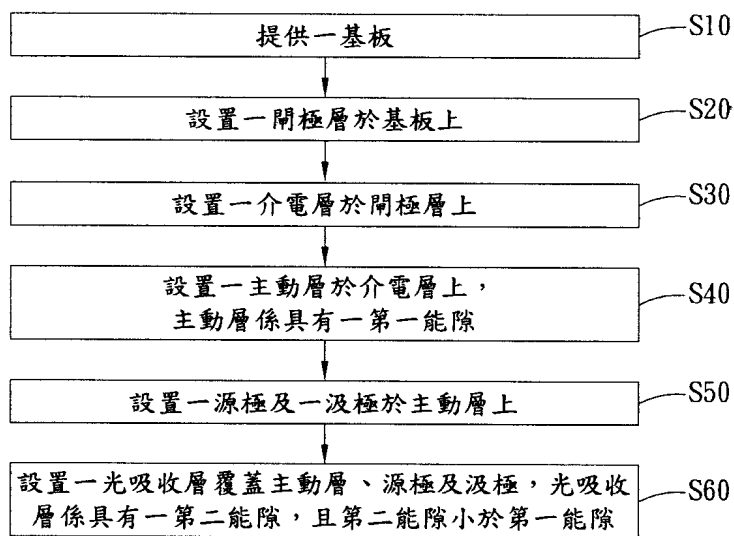 提供一基板
S10
設置一閘極層於基板上
S20
設置一介電層於閘極層上
S30
設置一主動層於介電層上，
主動層係具有一第一能隙
S40
設置一源極及一汲極於主動層上
S50
設置一光吸收层覆蓋主動層、源極及汲極，光吸收
層係具有一第二能隙，且第二能隙小於第一能隙
S60